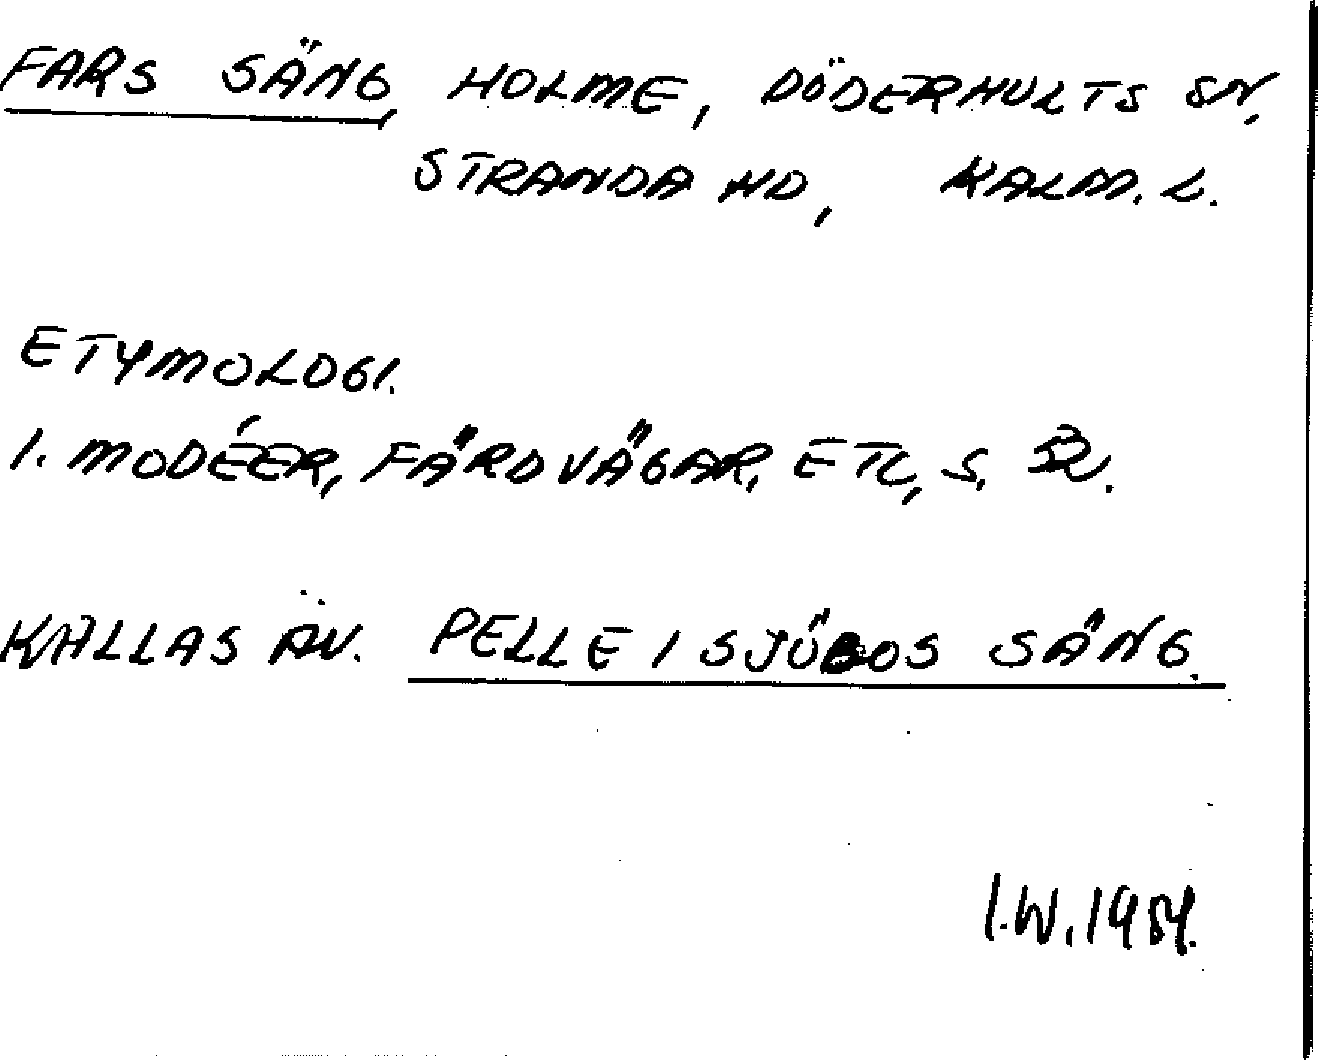 FARS SÄNG, HOLME, DÖDERHULTS SN,
STRANDA HD, KALM. L.
ETYMOLOGI.
I. MODÉER, FÄRDVÄGAR, ETC, S. 52.
KALLAS ÄV. PELLE I SJÖBOS SÄNG.
I.W. 1954.